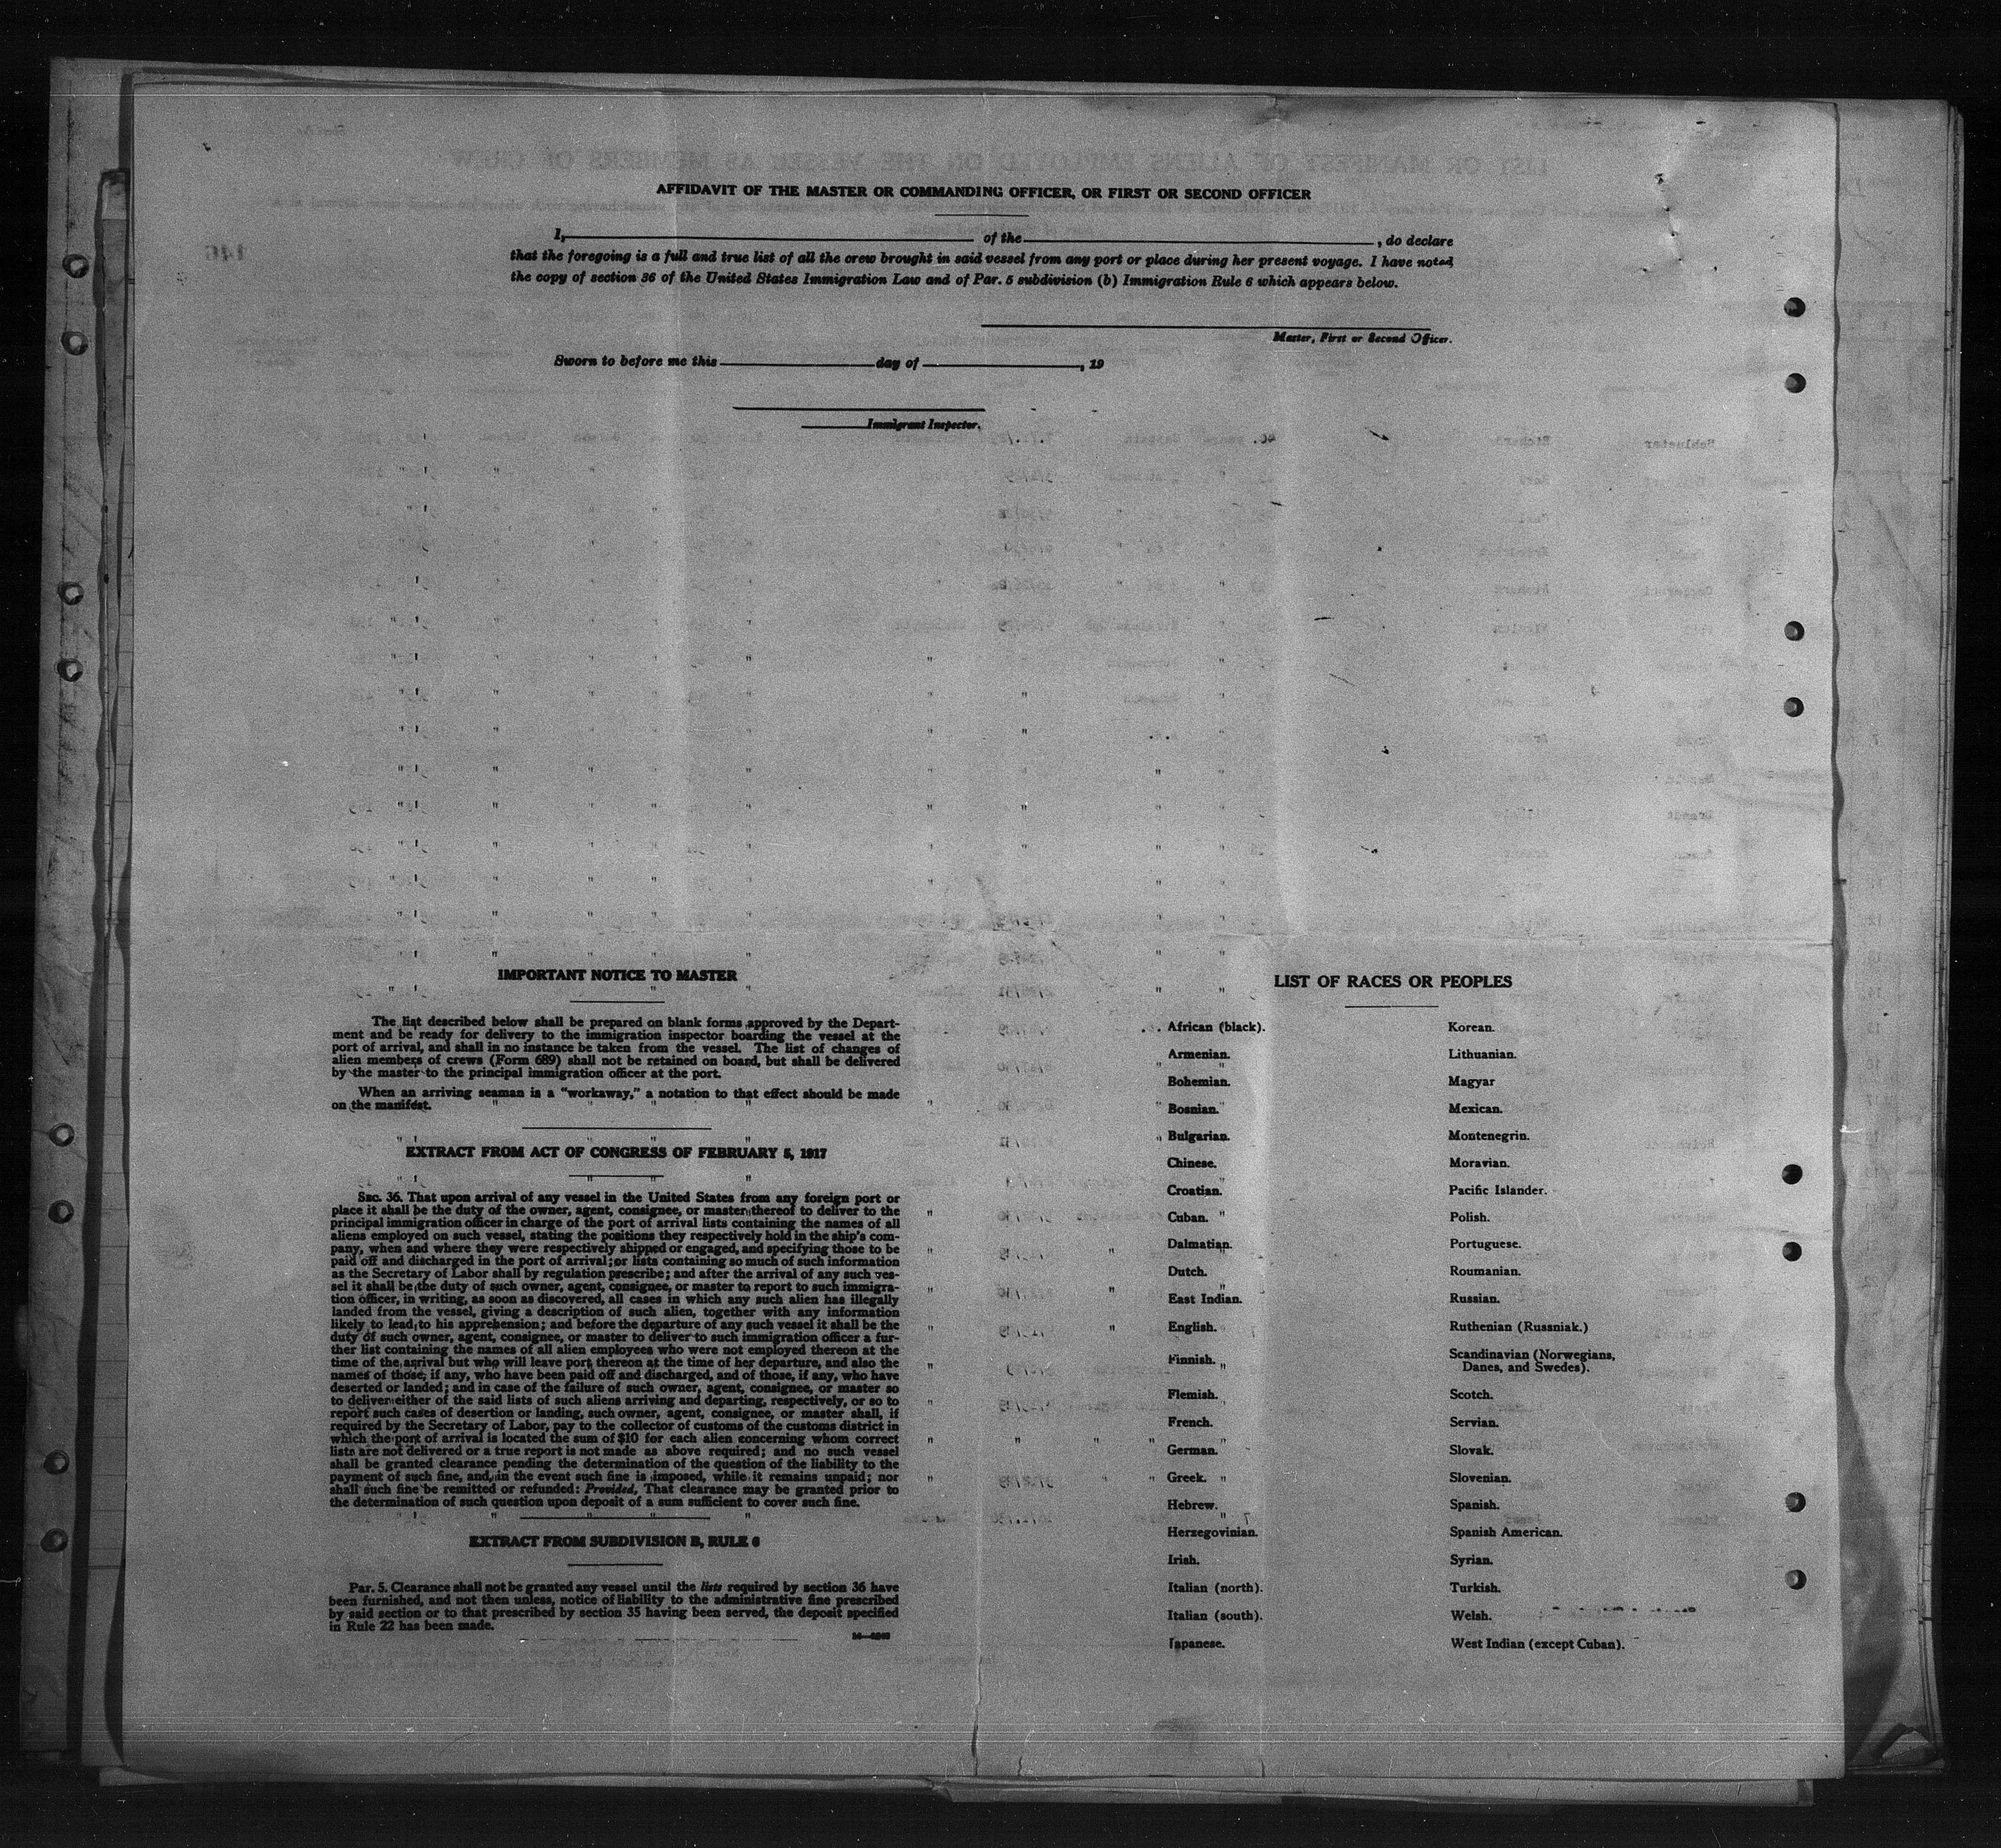 AFFIDAVIT OF THE MASTER OR COMMANDING OFFICER, OR FIRST OR SECOND OFFICER
I, of the , do declare
that the foregoing is a full and true list of all the crew brought in said vessel from any port or place during her present voyage. I have noted
the copy of section 36 of the United States Immigration Law and of Par. 5 subdivision (b) Immigration Rule 6 which appears below.
Master, First or Second Officer.
Sworn to before me this day of , 19
Immigrant Inspector.
IMPORTANT NOTICE TO MASTER
The list described below shall be prepared on blank forms approved by the Depart-
ment and be ready for delivery to the immigration inspector boarding the vessel at the
port of arrival, and shall in no instance be taken from the vessel. The list of changes of
alien members of crews (Form 689) shall not be retained on board, but shall be delivered
by the master to the principal immigration officer at the port.
When an arriving seaman is a "workaway," a notation to that effect should be made
on the manifest.
EXTRACT FROM ACT OF CONGRESS OF FEBRUARY 5, 1917
SEC. 36. That upon arrival of any vessel in the United States from any foreign port or
place it shall be the duty of the owner, agent, consignee, or master thereof to deliver to the
principal immigration officer in charge of the port of arrival lists containing the names of all
aliens employed on such vessel, stating the positions they respectively hold in the ship's com-
pany, when and where they were respectively shipped or engaged, and specifying those to be
paid off and discharged in the port of arrival; or lists containing so much of such information
as the Secretary of Labor shall by regulation prescribe; and after the arrival of any such ves-
sel it shall be the duty of such owner, agent, consignee, or master to report to such immigra-
tion officer, in writing, as soon as discovered, all cases in which any such alien has illegally
landed from the vessel, giving a description of such alien, together with any information
likely to lead to his apprehension; and before the departure of any such vessel it shall be the
duty of such owner, agent, consignee, or master to deliver to such immigration officer a fur-
ther list containing the names of all alien employees who were not employed thereon at the
time of the arrival but who will leave port thereon at the time of her departure, and also the
names of those, if any, who have been paid off and discharged, and of those, if any, who have
deserted or landed; and in case of the failure of such owner, agent, consignee, or master so
to deliver either of the said lists of such aliens arriving and departing, respectively, or so to
report such cases of desertion or landing, such owner, agent, consignee, or master shall, if
required by the Secretary of Labor, pay to the collector of customs of the customs district in
which the port of arrival is located the sum of $10 for each alien concerning whom correct
lists are not delivered or a true report is not made as above required; and no such vessel
shall be granted clearance pending the determination of the question of the liability to the
payment of such fine, and, in the event such fine is imposed, while it remains unpaid; nor
shall such fine be remitted or refunded: Provided, That clearance may be granted prior to
the determination of such question upon deposit of a sum sufficient to cover such fine.
EXTRACT FROM SUBDIVISION B, RULE 6
Par. 5. Clearance shall not be granted any vessel until the lists required by section 36 have
been furnished, and not then unless, notice of liability to the administrative fine prescribed
by said section or to that prescribed by section 35 having been served, the deposit specified
in Rule 22 has been made.
LIST OF RACES OR PEOPLES
African (black).
Armenian.
Bohemian.
Bosnian.
Bulgarian.
Chinese.
Croatian.
Cuban.
Dalmatian.
Dutch.
East Indian.
English.
Finnish.
Flemish.
French.
German.
Greek.
Hebrew.
Herzegovinian.
Irish.
Italian (north).
Italian (south).
Japanese.
Korean.
Lithuanian.
Magyar
Mexican.
Montenegrin.
Moravian.
Pacific Islander.
Polish.
Portuguese.
Roumanian.
Russian.
Ruthenian (Russniak.)
Scandinavian (Norwegians,
Danes, and Swedes).
Scotch.
Servian.
Slovak.
Slovenian.
Spanish.
Spanish American.
Syrian.
Turkish.
Welsh.
West Indian (except Cuban).